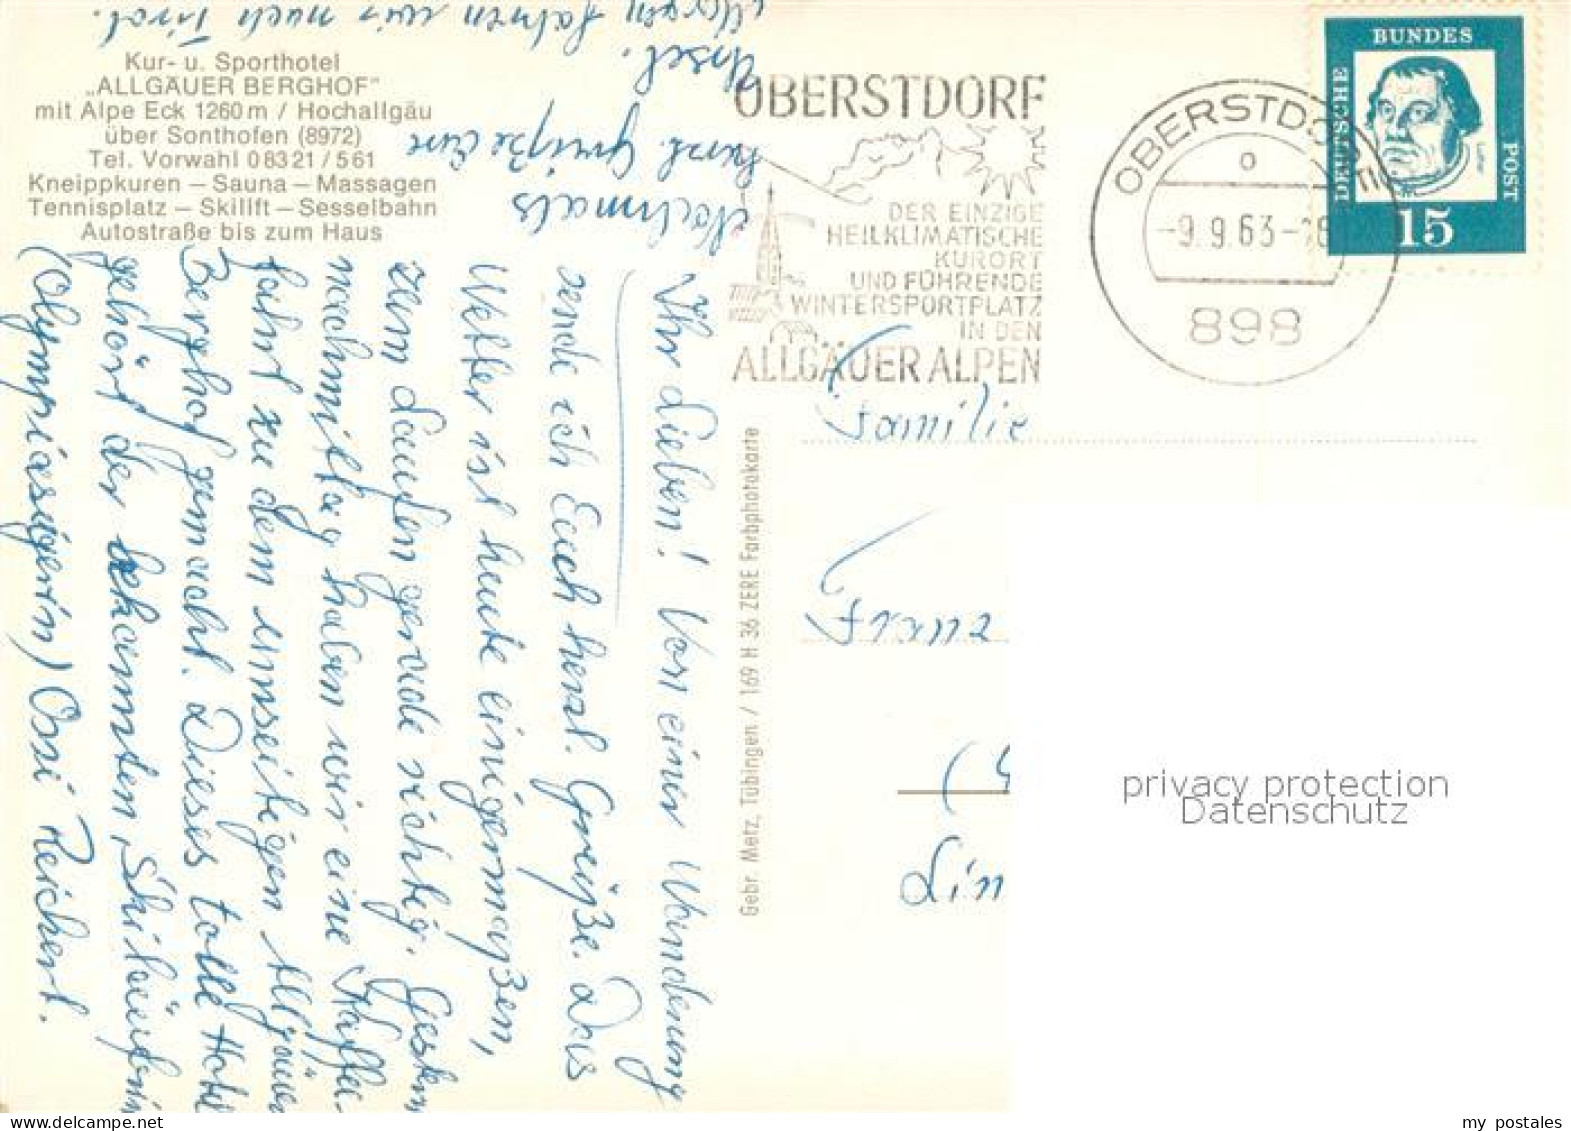 Kur- u. Sporthotel
„ALLGÄUER BERGHOF"
mit Alpe Eck 1260 m / Hochallgäu
über Sonthofen (8972)
Tel. Vorwahl 08321 / 561
Kneippkuren – Sauna – Massagen
Tennisplatz – Skilift – Sesselbahn
Autostraße bis zum Haus
Ihr Lieben! Von einer Wanderung
sende ich Euch herzl. Grüße. Das
Wetter ist heute einigermaßen,
zum Laufen gerade richtig. Gestern
nachmittag haben wir eine Kaffee-
fahrt zu dem umseitigen Allgäuer
Berghof gemacht. Dieses tolle Hotel
gehört der bekannten Skiläuferin
(Olympiasiegerin) Ossi Reichert.
Nochmals
herzl. Grüße Eure
Ursel.
Morgen fahren wir nach Tirol.
Gebr. Metz, Tübingen / 169 H 36 ZERE Farbphotokarte
OBERSTDORF
DER EINZIGE
HEILKLIMATISCHE
KURORT
UND FÜHRENDE
WINTERSPORTPLATZ
IN DEN
ALLGÄUER ALPEN
OBERSTDORF
-9.9.63-18
898
DEUTSCHE
BUNDES
POST
Luther
15
Familie
Franz
(
Lin
privacy protection
Datenschutz
my_postales